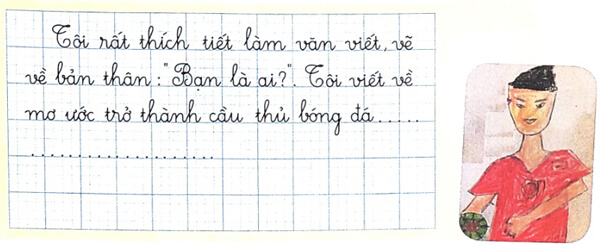 Tôi rất thích tiết làm văn viết, vẽ
về bản thân : "Bạn là ai?". Tôi viết về
mơ ước trở thành cầu thủ bóng đá.....
....................